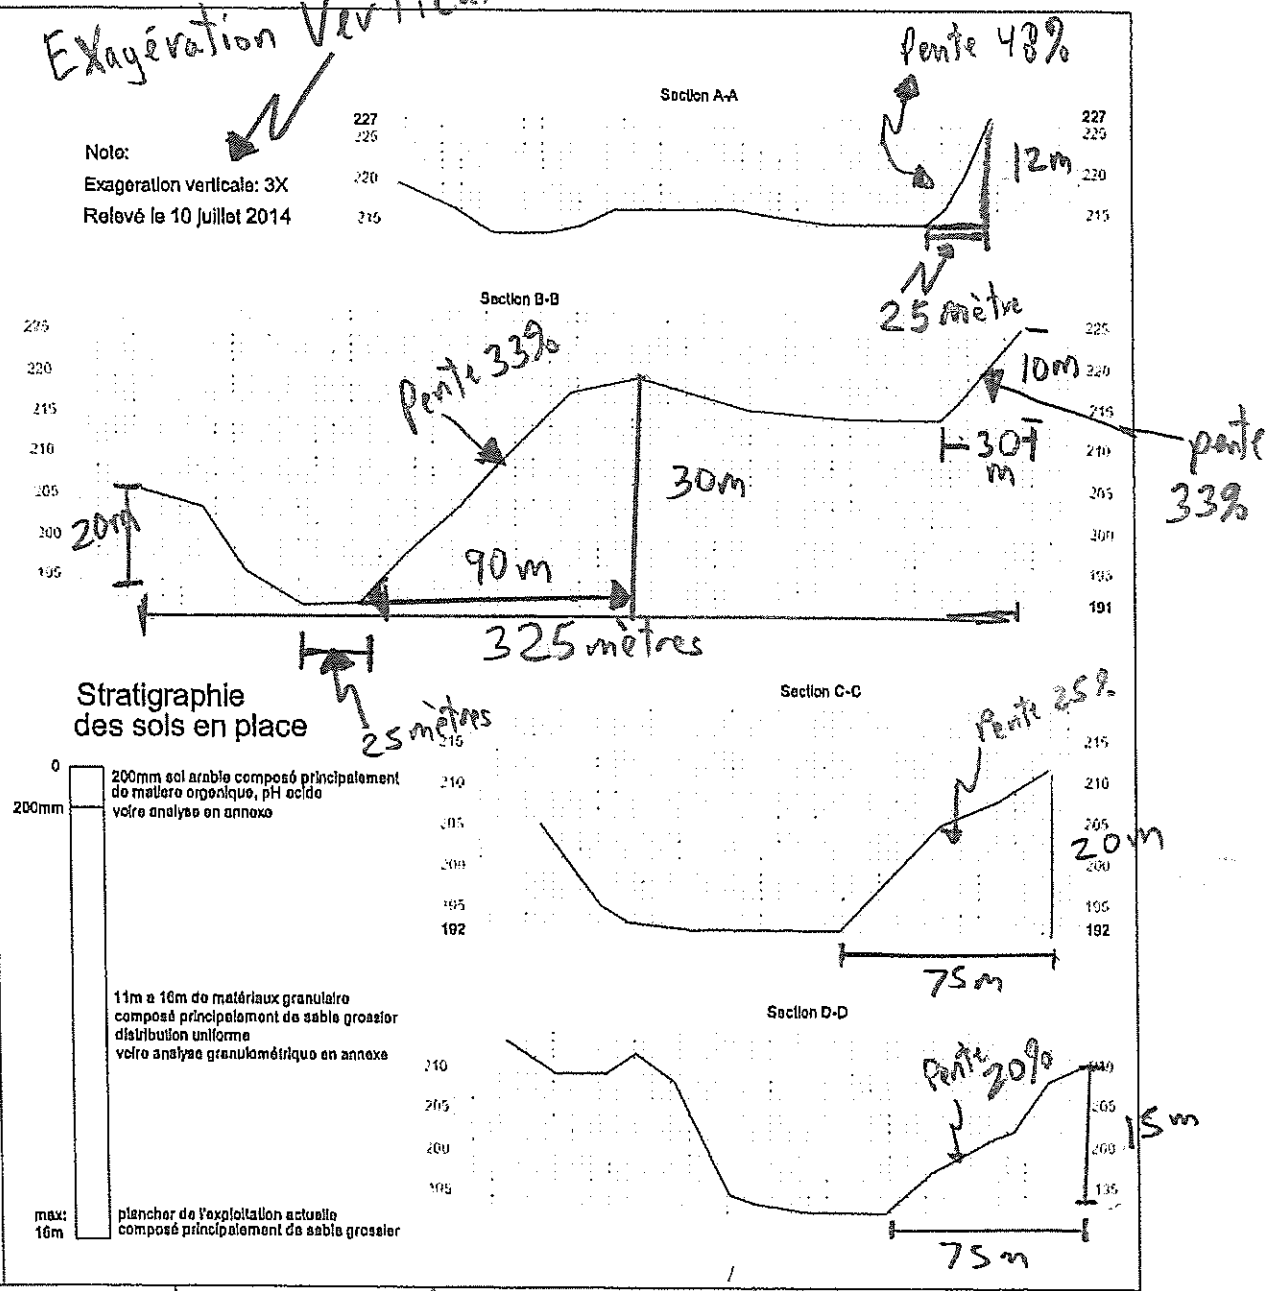 EXagération
Pente 48%
Section A-A
227
225
220
215
227
225
220
215
12m
Note:
Exageration verticale: 3X
Relevé le 10 juillet 2014
25 mètre
Section B-B
225
220
215
210
205
200
195
225
220
215
210
205
200
195
191
Pente 33%
10m
30
m
pente
33%
30m
20m
90 m
325 mètres
25 mètres
Stratigraphie
des sols en place
0
200mm
200mm sol arable composé principalement
de matiere orgonique, pH acide
voire analyse en annexe
11m a 16m de matériaux granulaire
composé principalement de sable grossier
distribution uniforme
voire analyse granulométrique en annexe
max:
16m
plancher de l'exploitation actuelle
composé principalement de sable grossier
Section C-C
Pente 25%
215
210
205
200
195
192
215
210
205
200
195
192
20m
75m
Section D-D
Pente 20%
210
205
200
195
210
205
200
15m
75m